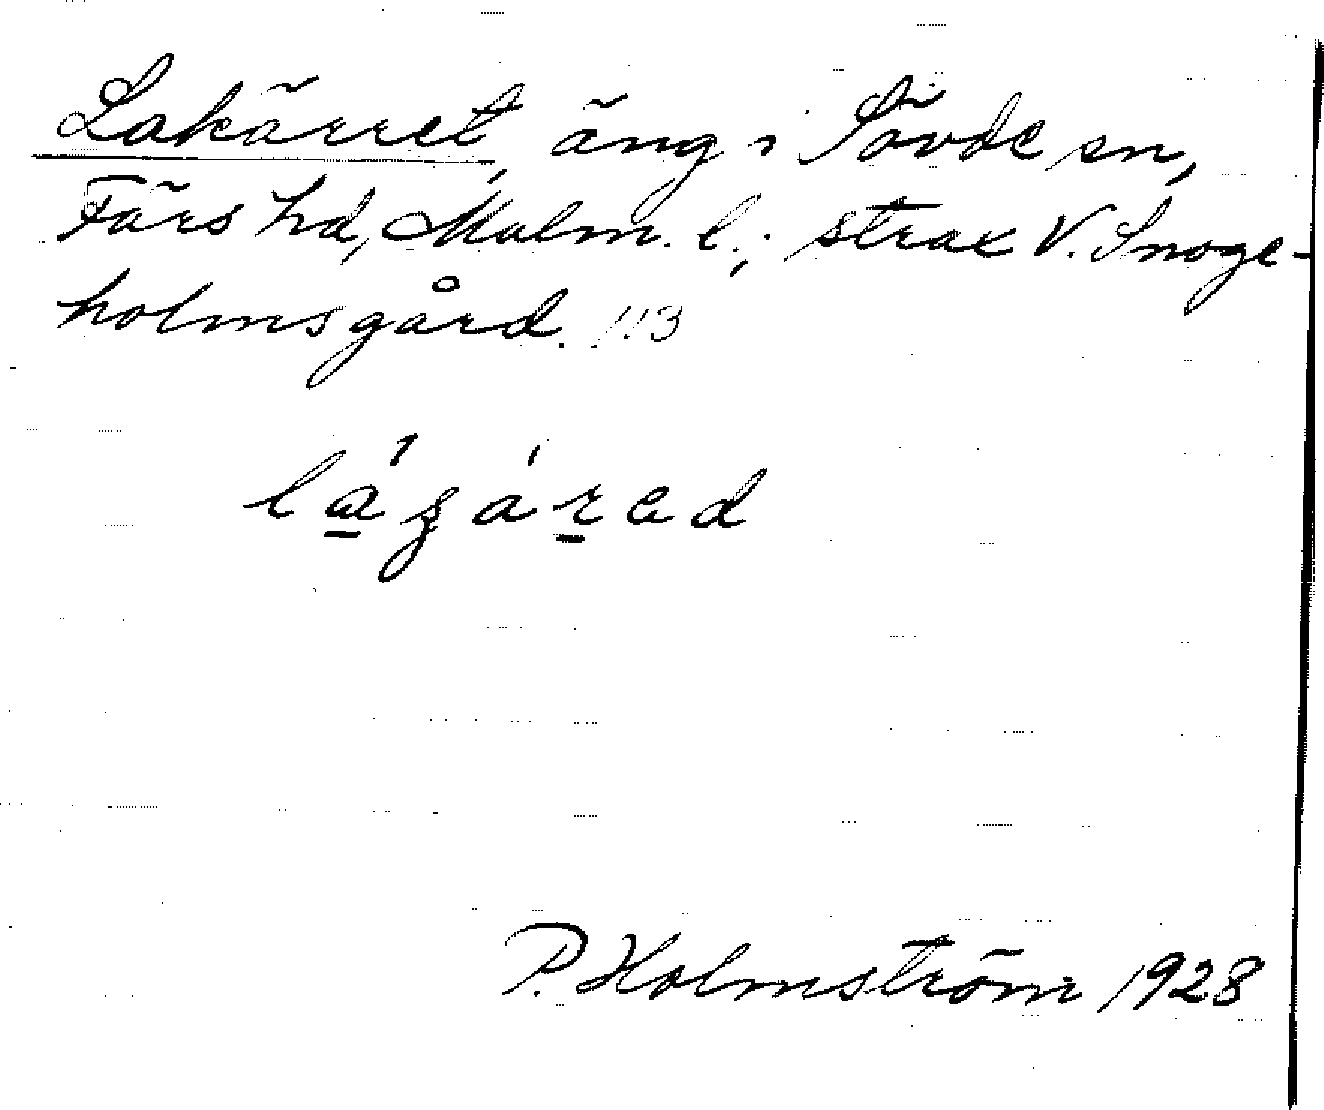 Lakärret, äng i Sövde sn,
Färs hd, Malm. l.; strax V. Snoge-
holmsgård. 113
P. Holmström 1928